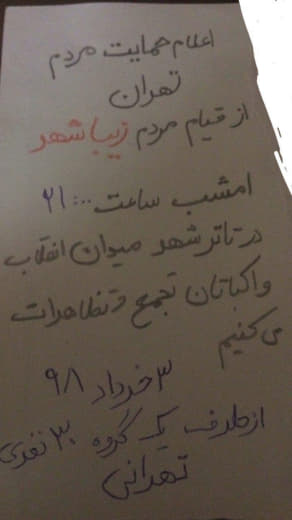 اعلام حمایت مردم
تهران
از قیام مردم زیباشهر
امشب ساعت ۲۱:۰۰
در تاتر شهر میدان انقلاب
و اکباتان تجمع و تظاهرات
می کنیم
۳ خرداد ۹۸
از طرف یک گروه ۳۰ نفری
تهرانی